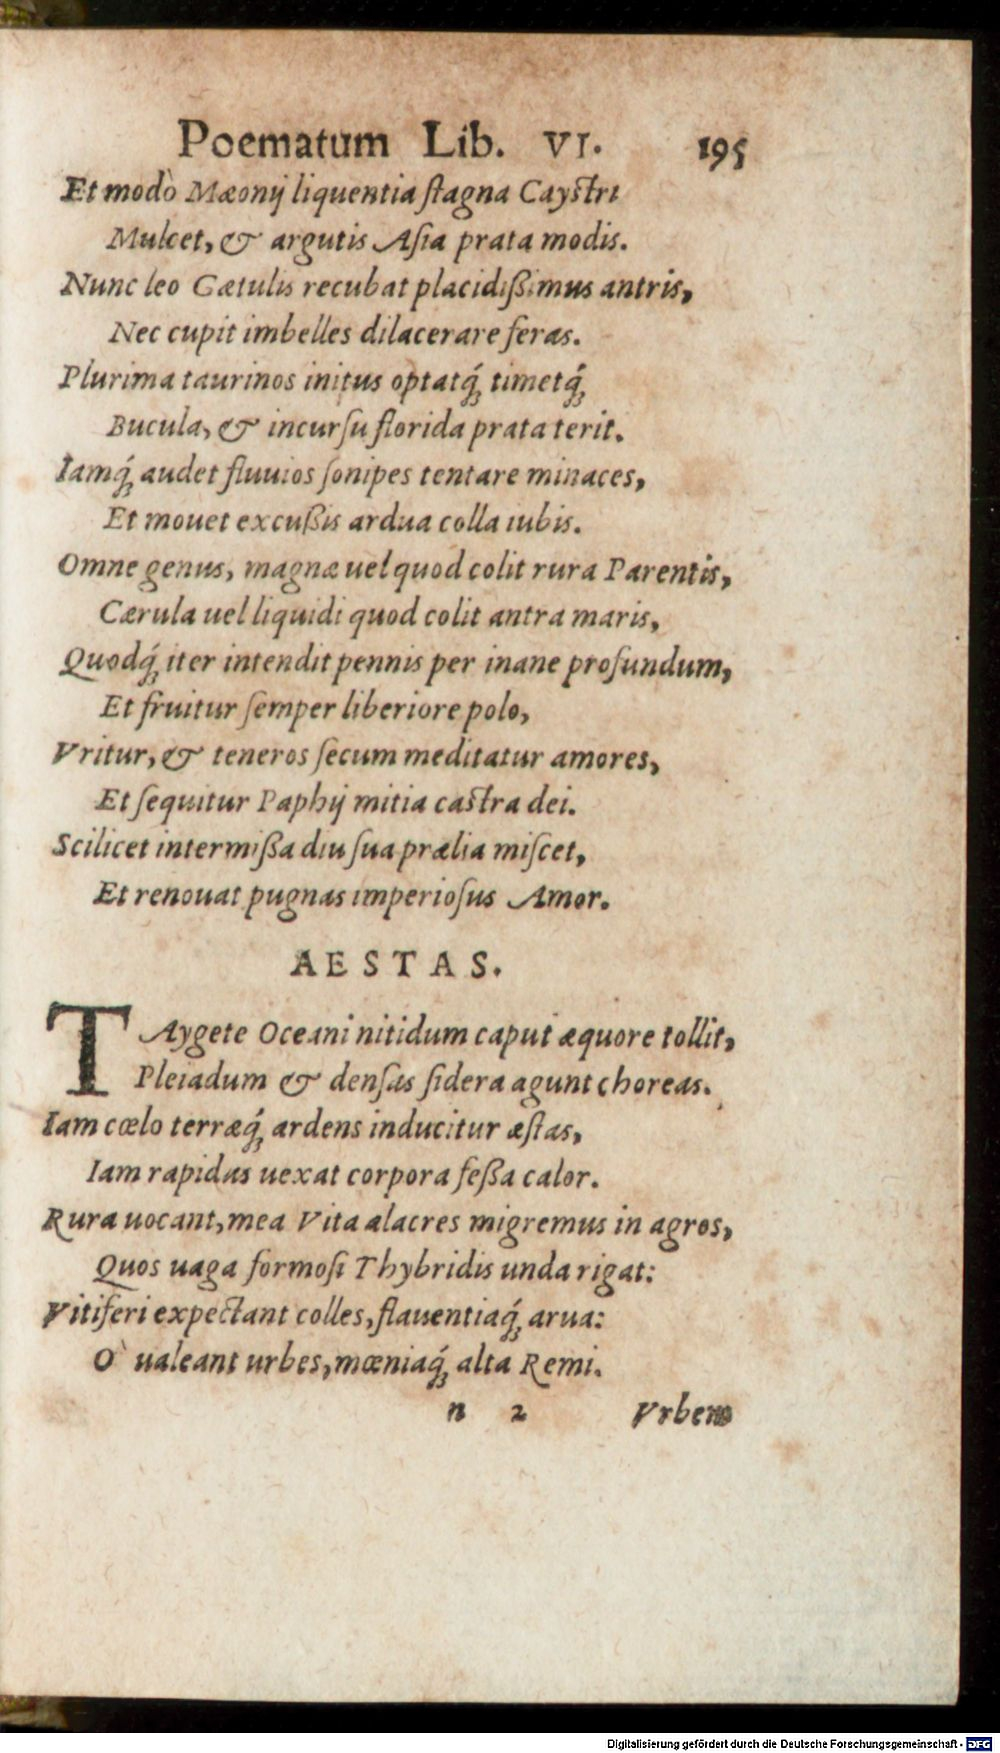 Poematum Lib. VI. 195
Et modò Mæonij liquentia ſtagna Cayſtri
Mulcet, & argutis Aſia prata modis.
Nunc leo Gætulis recubat placidiſſimus antris,
Nec cupit imbelles dilacerare feras.
Plurima taurinos initus optatq́ꝫ timetq́ꝫ
Bucula, & incurſu florida prata terit.
Iamq́ꝫ audet fluuios ſonipes tentare minaces,
Et mouet excuſſis ardua colla iubis.
Omne genus, magnæ uel quod colit rura Parentis,
Cærula uel liquidi quod colit antra maris,
Quodq́ꝫ iter intendit pennis per inane profundum,
Et fruitur ſemper liberiore polo,
Vritur, & teneros ſecum meditatur amores,
Et ſequitur Paphij mitia caſtra dei.
Scilicet intermiſſa diu ſua prælia miſcet,
Et renouat pugnas imperioſus Amor.
AESTAS.
TAygete Oceani nitidum caput æquore tollit,
Pleiadum & denſas ſidera agunt choreas.
Iam cœlo terræq́ꝫ ardens inducitur æſtas,
Iam rapidus uexat corpora feſſa calor.
Rura uocant, mea Vita alacres migremus in agros,
Quos uaga formoſi Thybridis unda rigat:
Vitiferi expectant colles, flauentiaq́ꝫ arua:
O` ualeant urbes, mœniaq́ꝫ alta Remi.
n 2 Vrbem
Digitalisierung gefördert durch die Deutsche Forschungsgemeinschaft - DFG